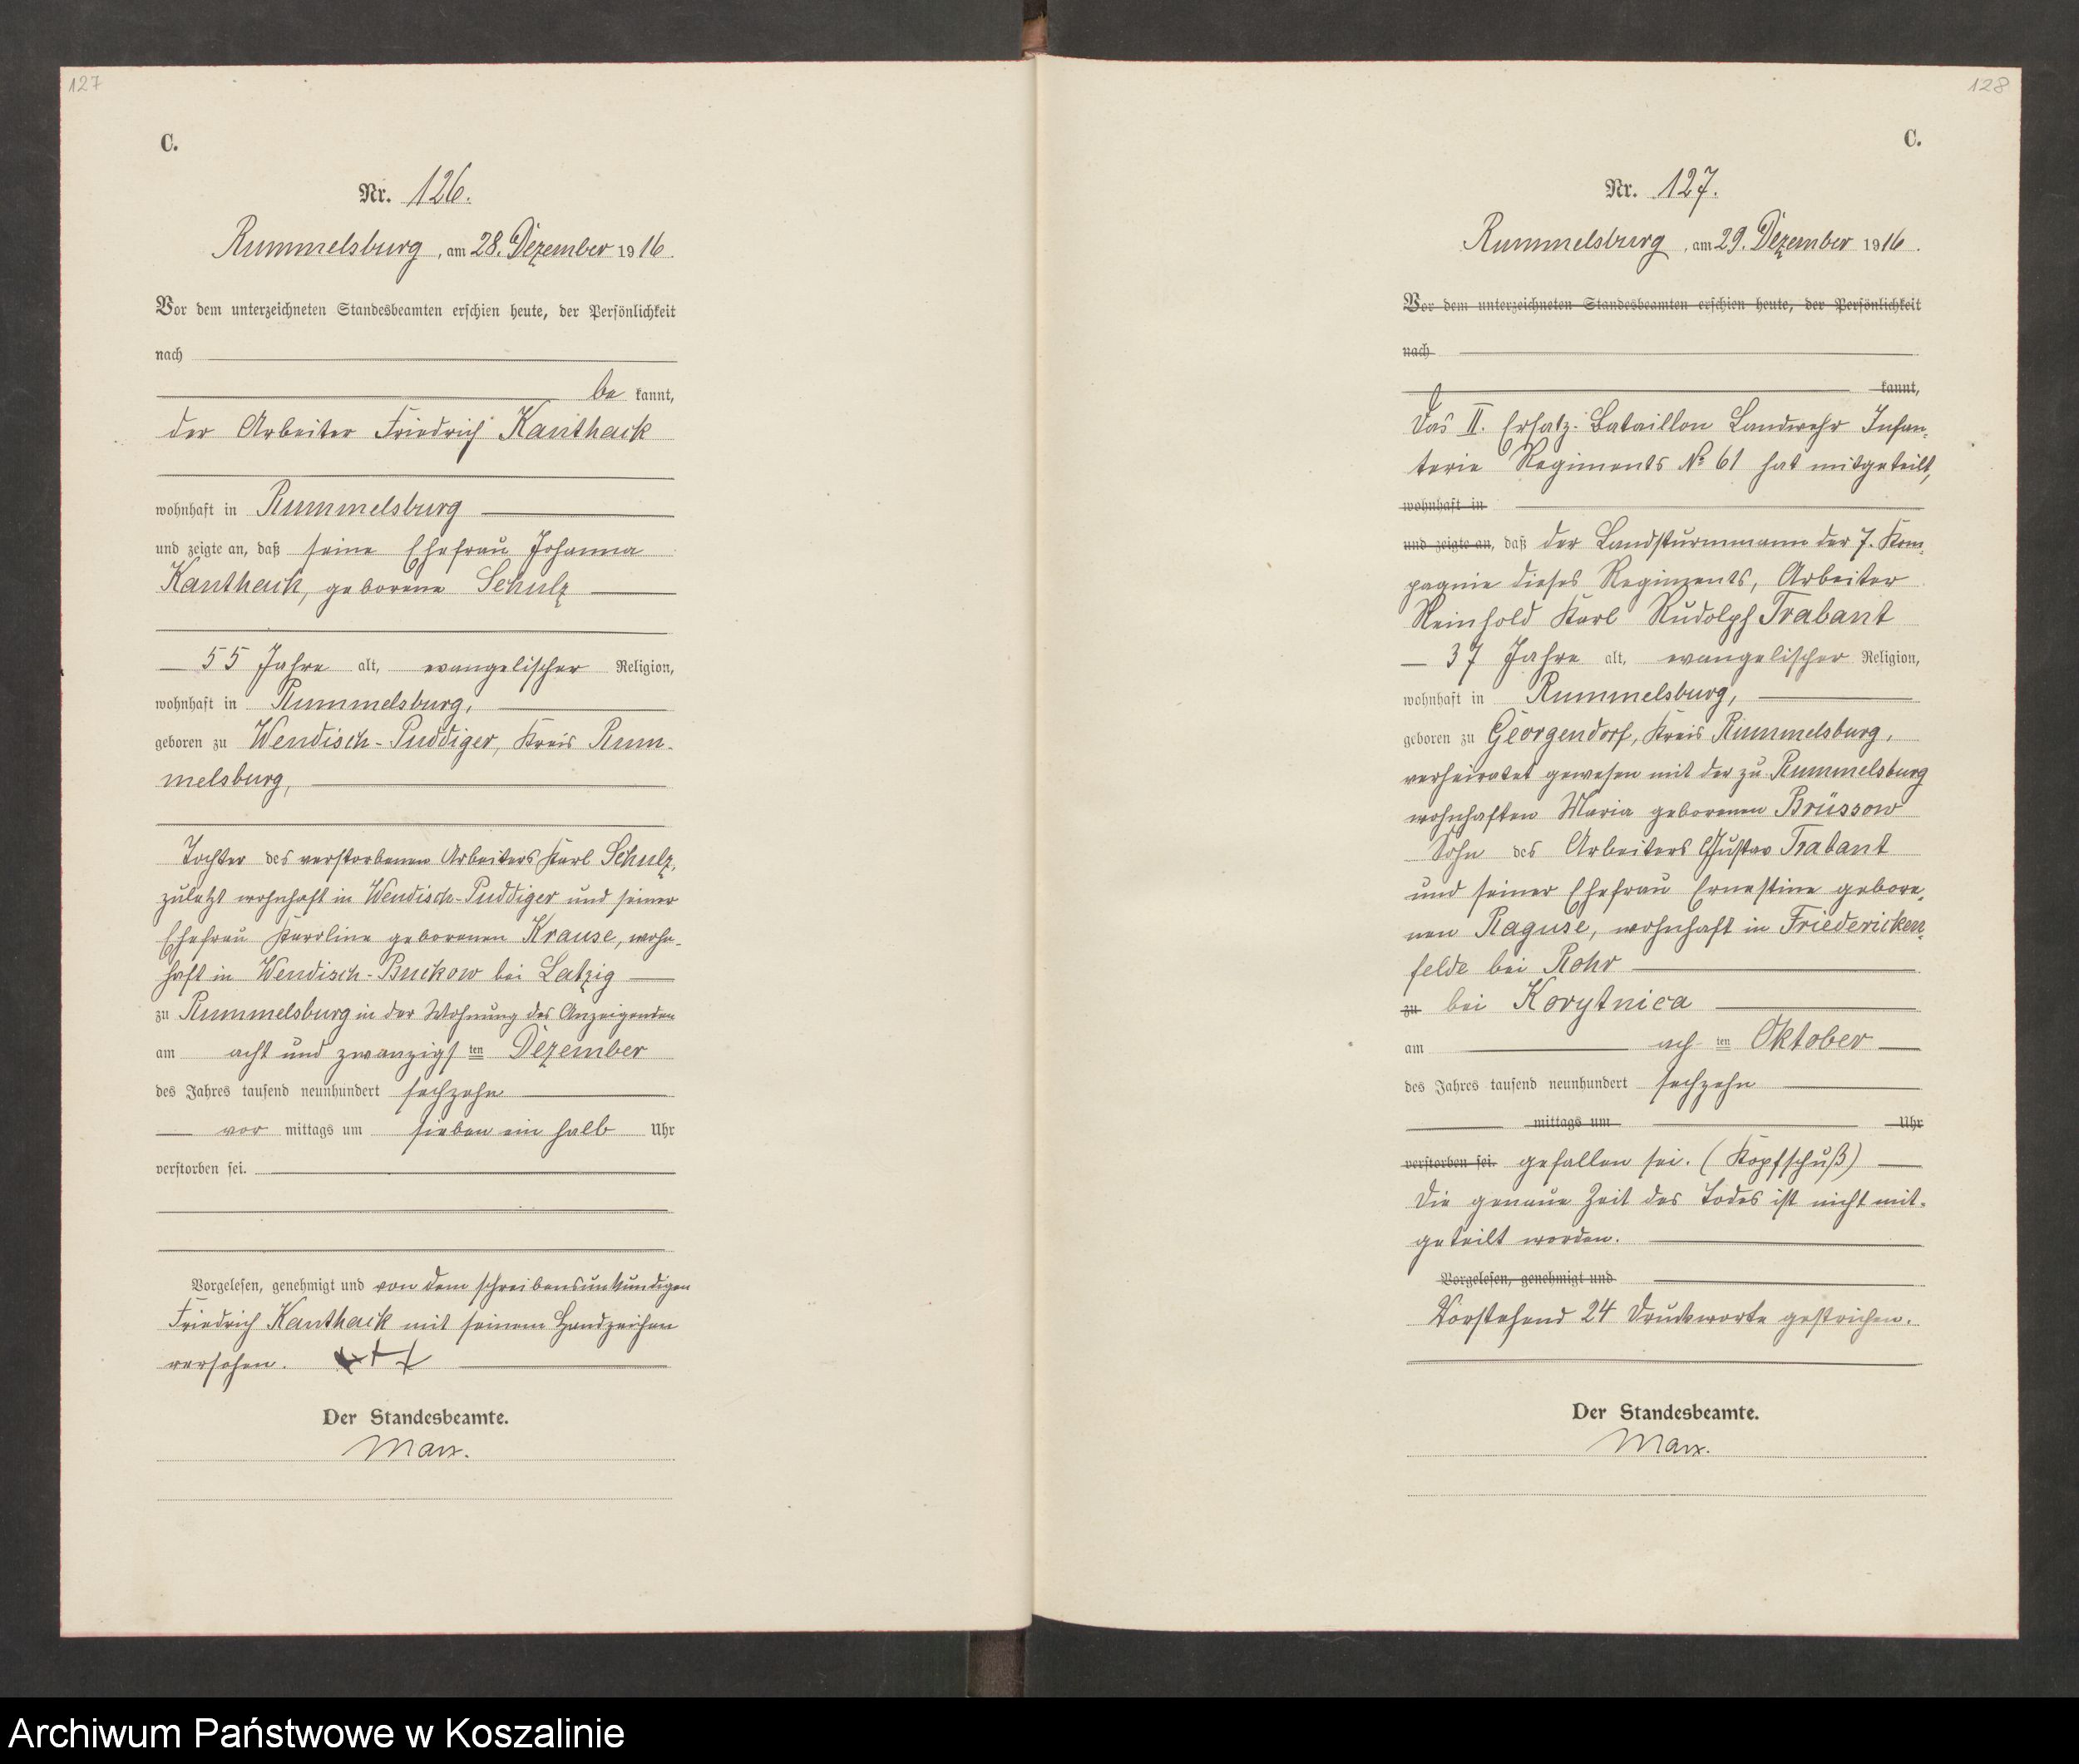 127
C.
Nr. 126.
Rummelsburg, am 28. Dezember 1916.
Vor dem unterzeichneten Standesbeamten erschien heute, der Persönlichkeit
nach
be kannt,
der Arbeiter Friedrich Kanthack
wohnhaft in Rummelsburg
und zeigte an, daß seine Ehefrau Johanna
Kanthack, geborene Schulz
55 Jahre alt, evangelischer Religion,
wohnhaft in Rummelsburg,
geboren zu Wendisch-Puddiger, Kreis Rum-
melsburg,
Tochter des verstorbenen Arbeiters Karl Schulz,
zuletzt wohnhaft in Wendisch-Puddiger und seiner
Ehefrau Karoline geborenen Krause, wohn-
haft in Wendisch-Buckow bei Latzig
zu Rummelsburg in der Wohnung des Anzeigenden
am acht und zwanzigsten Dezember
des Jahres tausend neunhundert sechzehn
vor mittags um sieben ein halb Uhr
verstorben sei.
Vorgelesen, genehmigt und von dem schreibensunkundigen
Friedrich Kanthack mit seinem Handzeichen
versehen. +++
Der Standesbeamte.
Marx.
128
C.
Nr. 127.
Rummelsburg, am 29. Dezember 1916.
Vor dem unterzeichneten Standesbeamten erschien heute, der Persönlichkeit
nach
kannt,
Das II. Ersatz-Bataillon Landwehr Infan-
terie Regiments No 61 hat mitgeteilt,
wohnhaft in
und zeigte an, daß der Landsturmmann der 7. Kom-
pagnie dieses Regiments, Arbeiter
Reinhold Karl Rudolph Trabant
37 Jahre alt, evangelischer Religion,
wohnhaft in Rummelsburg,
geboren zu Georgendorf, Kreis Rummelsburg,
verheiratet gewesen mit der zu Rummelsburg
wohnhaften Maria geborenen Brüssow
Sohn des Arbeiters Gustav Trabant
und seiner Ehefrau Ernestine gebore-
nen Raguse, wohnhaft in Friedericken-
felde bei Rohr
zu bei Korytnica
am ach ten Oktober
des Jahres tausend neunhundert sechzehn
mittags um Uhr
verstorben sei. gefallen sei. (Kopfschuß)
Die genaue Zeit des Todes ist nicht mit-
geteilt worden.
Vorgelesen, genehmigt und
Vorstehend 24 Druckworte gestrichen.
Der Standesbeamte.
Marx.
Archiwum Państwowe w Koszalinie